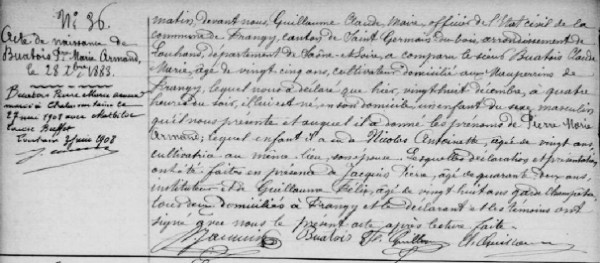 N° 36.
Acte de naissance de
Buatois Pre Marie Armand,
le 28 Xbre 1883.
Buatois Pierre Marie Armand
marié à
27 mai 1908 avec
Buffet
3 juin 1908
matin, devant nous Guillaume Claude, Maire, officier de l'Etat civil de la
commune de Frangy, canton de Saint Germain du bois, arrondissement de
Louhans, département de Saône-et-Loire, a comparu le sieur Buatois Claude
Marie, âgé de vingt cinq ans, cultivateur domicilié aux Mauperins de
Frangy, lequel nous a déclaré que hier, vingt huit décembre, à quatre
heures du soir, il lui est né, en son domicile, un enfant du sexe masculin
qu'il nous présente et auquel il a donné les prénoms de Pierre Marie
Armand; lequel enfant il a eu de Nicolas Antoinette, âgée de vingt ans,
cultivatrice au même lieu, son épouse. Lesquelles déclaration et présentation
ont été faites en présence de Jacquis Pierre, âgé de quarante deux ans,
instituteur et de Guillaume Félix, âgé de vingt huit ans, garde champêtre,
tous deux domiciliés à Frangy et le déclarant et les témoins ont
signé avec nous le présent acte après lecture faite.
Buatois Guillau